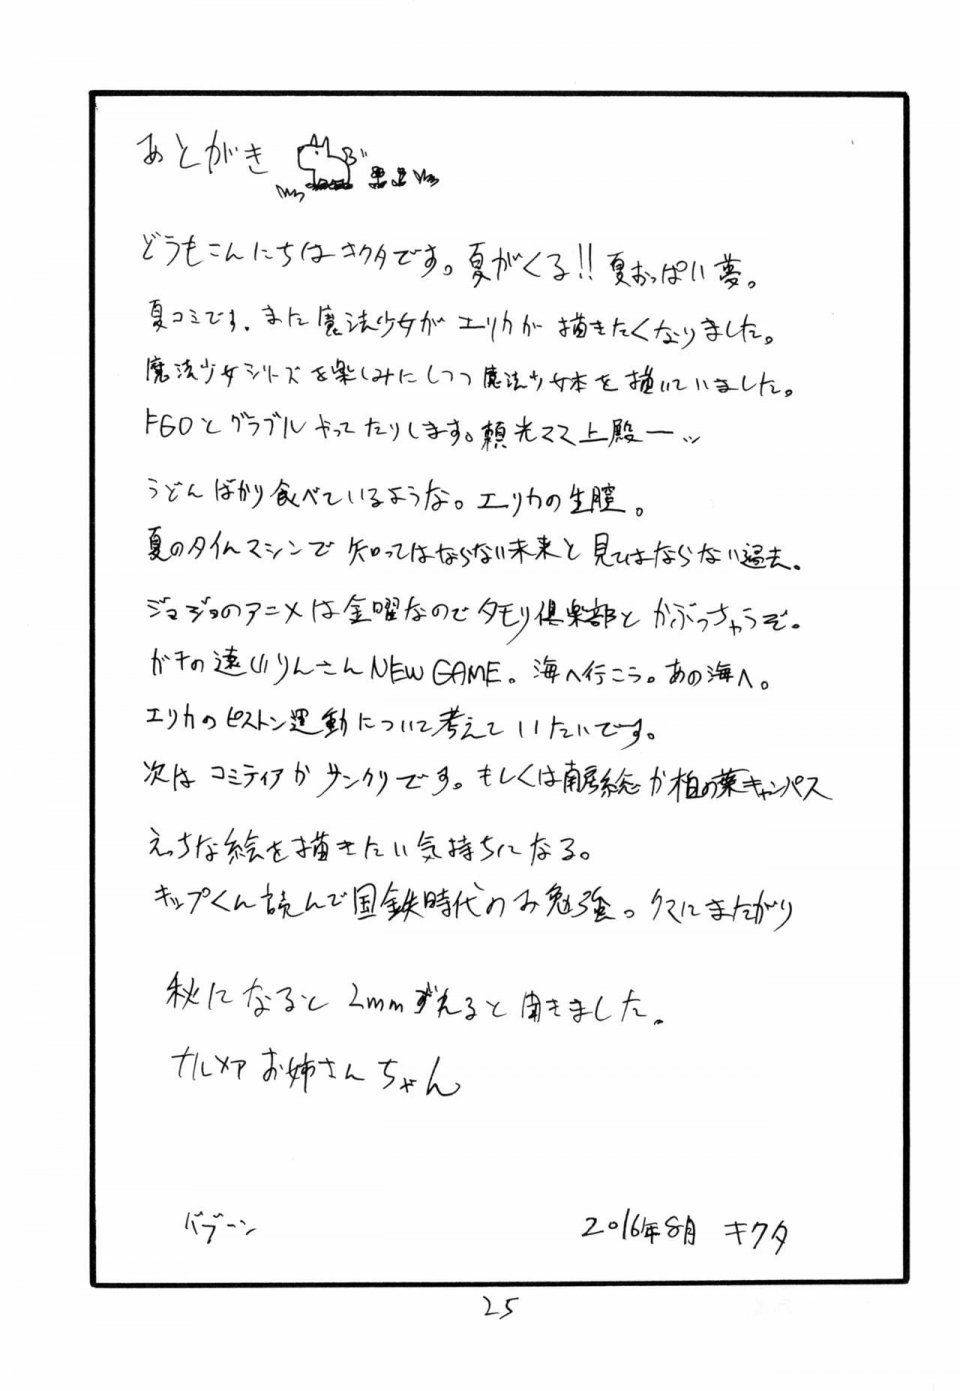 あとがき
どうもこんにちはキクタです。夏がくる!! 夏おっぱい夢。
夏コミです。また魔法少女がエリカが描きたくなりました。
魔法少女シリーズを楽しみにしつつ魔法少女本を描いていました。
FGOとグラブルやってたりします。頼光ママ上殿ー
うどんばかり食べているような。エリカの生膣。
夏のタイムマシンで知ってはならない未来と見てはならない過去。
ジョジョのアニメは金曜なのでタモリ倶楽部とかぶっちゃうぞ。
ガキの遠山りんさんNEW GAME。海へ行こう。あの海へ。
エリカのピストン運動について考えていたいです。
次はコミティアかサンクリです。もしくは南房総か柏の葉キャンパス
えっちな絵を描きたい気持ちになる。
キップくん読んで国鉄時代のお勉強。クマにまたがり
秋になると2mmずれると聞きました。
ナルメアお姉さんちゃん
バブーン
2016年8月 キクタ
25